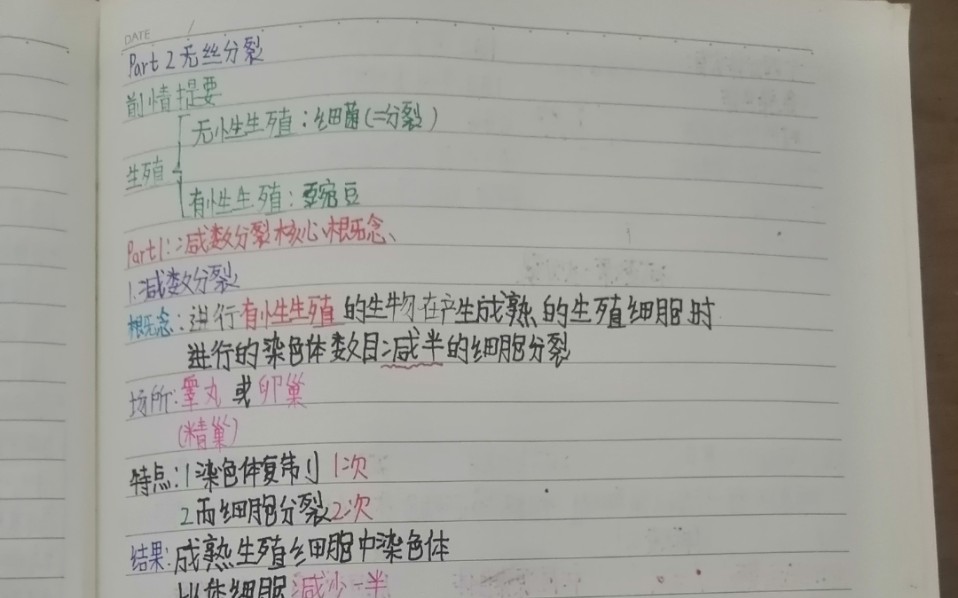 DATE
Part 2 无丝分裂
前情提要
无性生殖：细菌(二分裂)
生殖
有性生殖：豌豆
Part1：减数分裂核心概念、
1.减数分裂
概念：进行有性生殖的生物在产生成熟的生殖细胞时
进行的染色体数目减半的细胞分裂
场所：睾丸或卵巢
(精巢)
特点：1染色体复制 1次
2而细胞分裂2次
结果：成熟生殖细胞中染色体
比体细胞减少一半